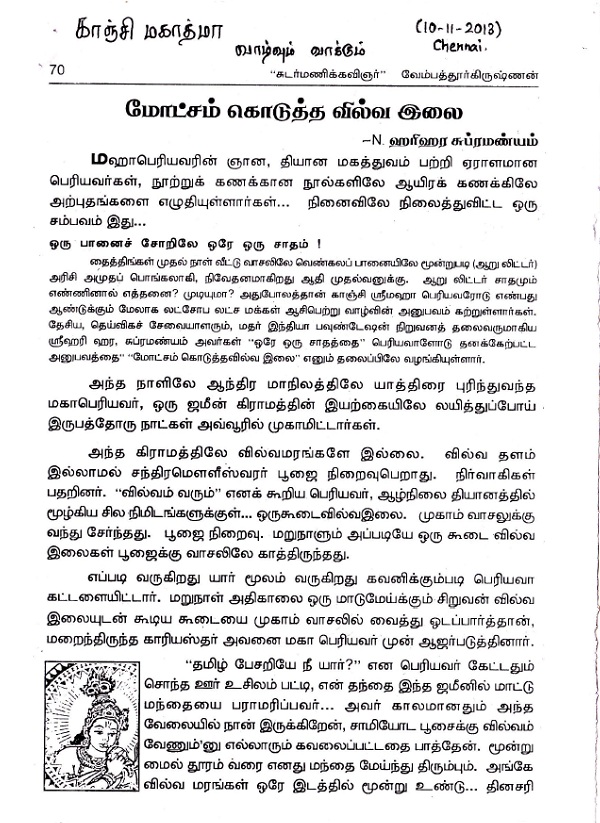 காஞ்சி மகாத்மா
வாழ்வும் வாக்கும்
(10-11-2013)
Chennai.
70
“சுடர்மணிக்கவிஞர்” வேம்பத்தூர்கிருஷ்ணன்
மோட்சம் கொடுத்த வில்வ இலை
–N. ஹரிஹர சுப்ரமண்யம்
மஹாபெரியவரின் ஞான, தியான மகத்துவம் பற்றி ஏராளமான
பெரியவர்கள், நூற்றுக் கணக்கான நூல்களிலே ஆயிரக் கணக்கிலே
அற்புதங்களை எழுதியுள்ளார்கள்... நினைவிலே நிலைத்துவிட்ட ஒரு
சம்பவம் இது...
ஒரு பானைச் சோறிலே ஒரே ஒரு சாதம் !
தைத்திங்கள் முதல் நாள் வீட்டு வாசலிலே வெண்கலப் பானையிலே மூன்றுபடி (ஆறு லிட்டர்)
அரிசி அமுதப் பொங்கலாகி, நிவேதனமாகிறது ஆதி முதல்வனுக்கு. ஆறு லிட்டர் சாதமும்
எண்ணினால் எத்தனை? முடியுமா? அதுபோலத்தான் காஞ்சி ஸ்ரீமஹா பெரியவரோடு எண்பது
ஆண்டுக்கும் மேலாக லட்சோப லட்ச மக்கள் ஆசிபெற்று வாழ்வின் அனுபவம் கற்றுள்ளார்கள்.
தேசிய, தெய்விகச் சேவையாளரும், மதர் இந்தியா பவுண்டேஷன் நிறுவனத் தலைவருமாகிய
ஸ்ரீஹரி ஹர, சுப்ரமண்யம் அவர்கள் “ஒரே ஒரு சாதத்தை” பெரியவாளோடு தனக்கேற்பட்ட
அனுபவத்தை” “மோட்சம் கொடுத்தவில்வ இலை” எனும் தலைப்பிலே வழங்கியுள்ளார்.
அந்த நாளிலே ஆந்திர மாநிலத்திலே யாத்திரை புரிந்துவந்த
மகாபெரியவர், ஒரு ஜமீன் கிராமத்தின் இயற்கையிலே லயித்துப்போய்
இருபத்தோரு நாட்கள் அவ்வூரில் முகாமிட்டார்கள்.
அந்த கிராமத்திலே வில்வமரங்களே இல்லை. வில்வ தளம்
இல்லாமல் சந்திரமௌளீஸ்வரர் பூஜை நிறைவுபெறாது. நிர்வாகிகள்
பதறினர். “வில்வம் வரும்” எனக் கூறிய பெரியவர், ஆழ்நிலை தியானத்தில்
மூழ்கிய சில நிமிடங்களுக்குள்... ஒருகூடைவில்வஇலை. முகாம் வாசலுக்கு
வந்து சேர்ந்தது. பூஜை நிறைவு. மறுநாளும் அப்படியே ஒரு கூடை வில்வ
இலைகள் பூஜைக்கு வாசலிலே காத்திருந்தது.
எப்படி வருகிறது யார் மூலம் வருகிறது கவனிக்கும்படி பெரியவா
கட்டளையிட்டார். மறுநாள் அதிகாலை ஒரு மாடுமேய்க்கும் சிறுவன் வில்வ
இலையுடன் கூடிய கூடையை முகாம் வாசலில் வைத்து ஒடப்பார்த்தான்,
மறைந்திருந்த காரியஸ்தர் அவனை மகா பெரியவர் முன் ஆஜர்படுத்தினார்.
“தமிழ் பேசறியே நீ யார்?” என பெரியவர் கேட்டதும்
சொந்த ஊர் உசிலம் பட்டி, என் தந்தை இந்த ஜமீனில் மாட்டு
மந்தையை பராமரிப்பவர்... அவர் காலமானதும் அந்த
வேலையில் நான் இருக்கிறேன், சாமியோட பூசைக்கு வில்வம்
வேணும்'னு எல்லாரும் கவலைப்பட்டதை பாத்தேன். மூன்று
மைல் தூரம் வரை எனது மந்தை மேய்ந்து திரும்பும். அங்கே
வில்வ மரங்கள் ஒரே இடத்தில் மூன்று உண்டு... தினசரி